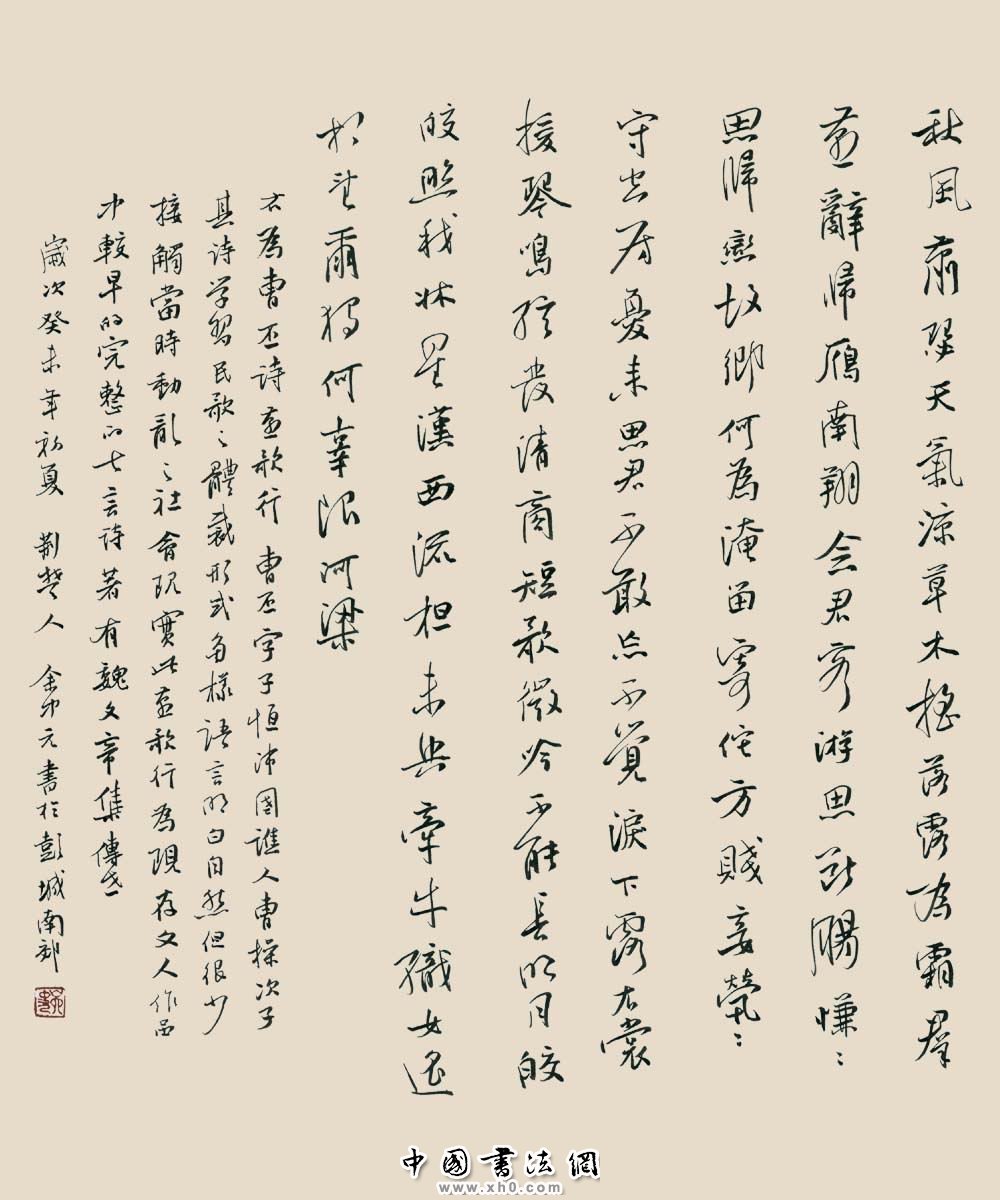 秋風蕭瑟天氣涼草木搖落露為霜羣
燕辭歸鴈南翔念君客游思斷腸慊〻
思歸戀故鄉何為淹留寄佗方賤妾煢〻
守空房憂来思君不敢忘不覺淚下霑衣裳
援琴鳴弦發清商短歌微吟不能長明月皎
皎照我牀星漢西流未央牽牛織女遙
相望爾獨何辜限河梁
右為曹丕詩燕歌行 曹丕字子恒沛國譙人曹操次子
其诗学習民歌〻體裁形式多樣語言明白自然但很少
接觸當時動亂〻社會現實此燕歌行為現存文人作品
中較早的完整的七言詩著有魏文帝集傳世
歲次癸未年初夏 荆楚人 余元書於彭城南郊
中國書法網
www.xh0.com